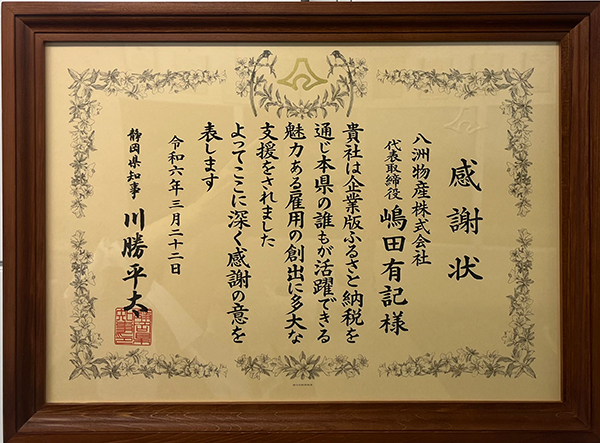 感謝状
八洲物産株式会社
代表取締役 嶋田有記様
貴社は企業版ふるさと納税を
通じ本県の誰もが活躍できる
魅力ある雇用の創出に多大な
支援をされました
よってここに深く感謝の意を
表します
令和六年三月二十二日
静岡県知事 川勝平太